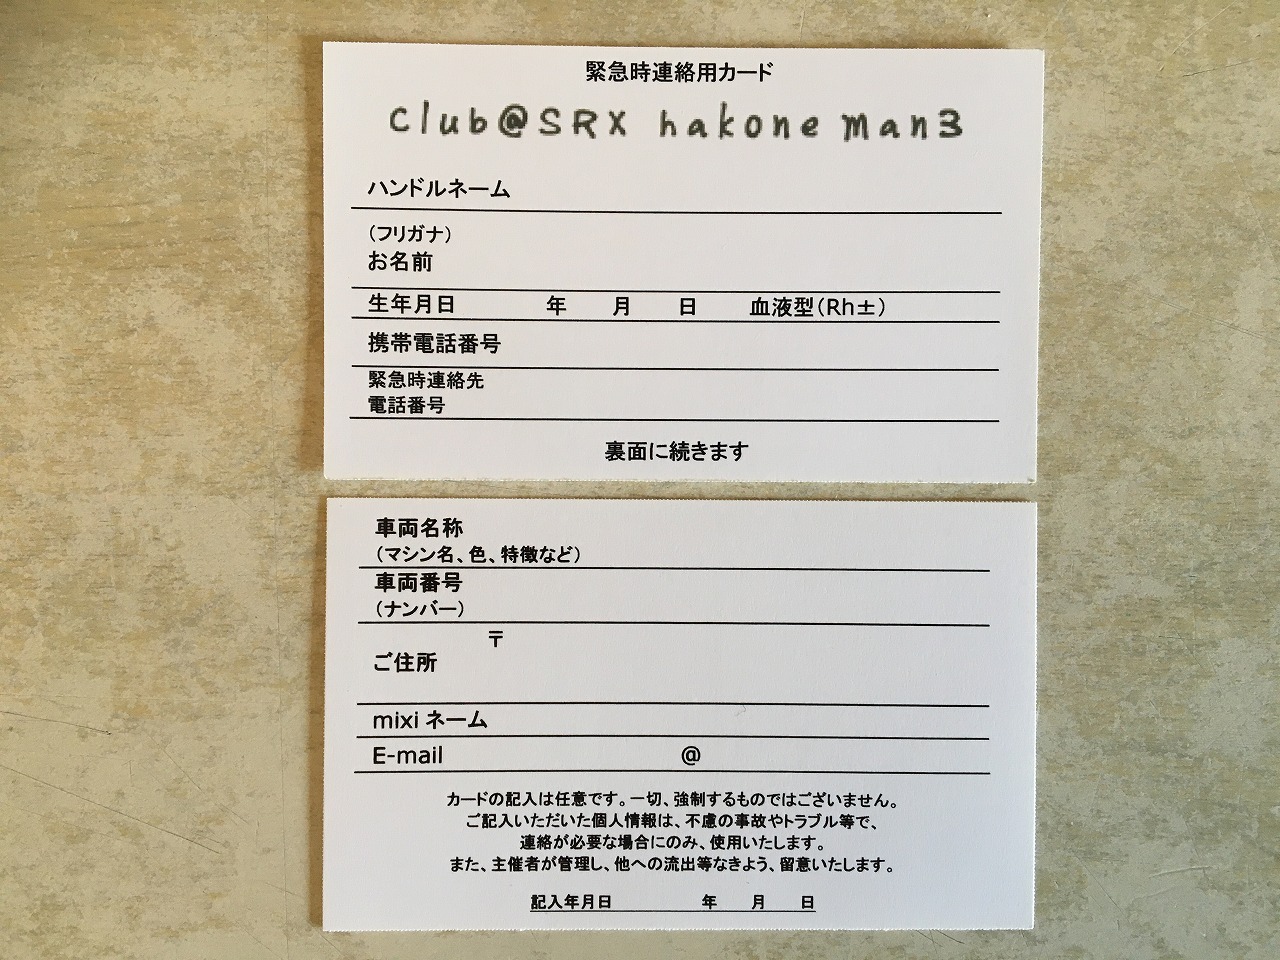 緊急時連絡用カード
club@SRX hakone man3
ハンドルネーム
（フリガナ）
お名前
生年月日 年 月 日 血液型（Rh±）
携帯電話番号
緊急時連絡先
電話番号
裏面に続きます
車両名称
（マシン名、色、特徴など）
車両番号
（ナンバー）
〒
ご住所
mixi ネーム
E-mail @
カードの記入は任意です。一切、強制するものではございません。
ご記入いただいた個人情報は、不慮の事故やトラブル等で、
連絡が必要な場合にのみ、使用いたします。
また、主催者が管理し、他への流出等なきよう、留意いたします。
記入年月日 年 月 日